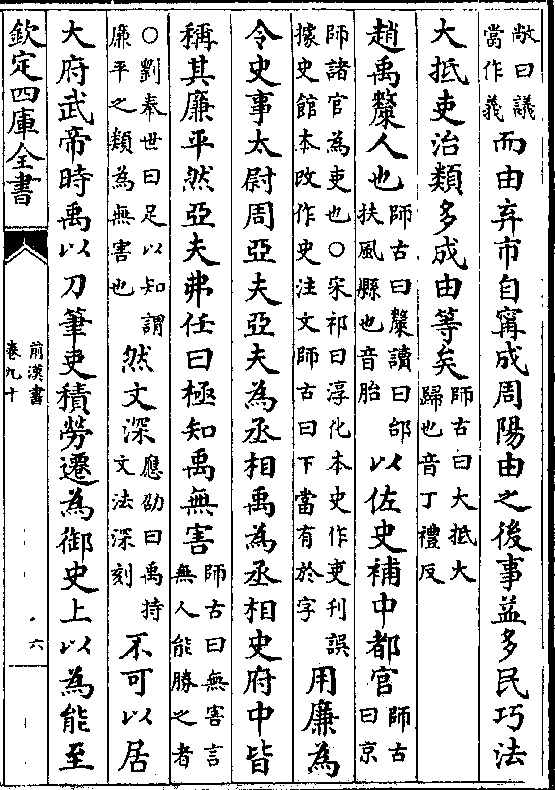 敞曰議當作義而由弃市自甯成周陽由之後事益多民巧法
大抵吏治類多成由等矣師古曰大抵大歸也音丁禮反
趙禹斄人也師古曰斄讀曰邰扶風縣也音胎以佐史補中都官師古曰京
師諸官為吏也○宋祁曰淳化本史作吏刊誤據史館本改作史注文師古曰下當有於字用廉為
令史事太尉周亞夫亞夫為丞相禹為丞相史府中皆
稱其廉平然亞夫弗任曰極知禹無害師古曰無害言無人能勝之者
○劉奉世曰足以知謂廉平之類為無害也然文深應劭曰禹持文法深刻不可以居
大府武帝時禹以刀筆吏積勞遷為御史上以為能至
欽定四庫全書
前漢書
卷九十
六